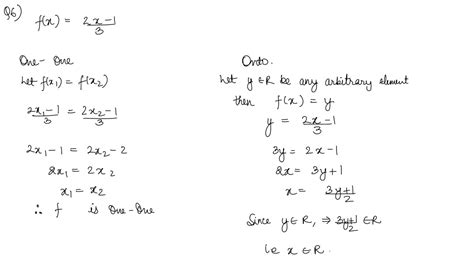 Q6) f(x) = 2x-1/3
One-One
Let f(x₁) = f(x₂)
2x₁-1/3 = 2x₂-1/3
2x₁-1 = 2x₂-2
2x₁ = 2x₂
x₁ = x₂
∴ f is One-One
Onto.
Let y ∈ R be any arbitrary element
then f(x) = y
y = 2x-1/3
3y = 2x-1
2x = 3y+1
x = 3y+1/2
Since y ∈ R, ⇒ 3y+1/2 ∈ R
i.e x ∈ R.